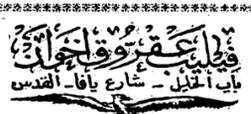 فيليب عقروق اخوان
باب الخليل - شارع يافا - القدس